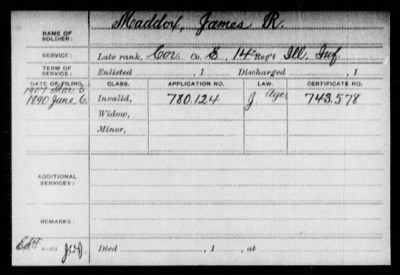 NAME OF SOLDIER: Maddox, James R.
SERVICE: Late rank, Cor. Co. E, 14 Reg't Ill. Inf.
TERM OF SERVICE: Enlisted , 1 Discharged , 1
DATE OF FILING. CLASS. APPLICATION NO. LAW. CERTIFICATE NO.
1907 Mar. 6
1890 June 6 Invalid, 780.124 J. Age 743.578
Widow,
Minor,
ADDITIONAL SERVICES:
REMARKS:
Died , 1 , at